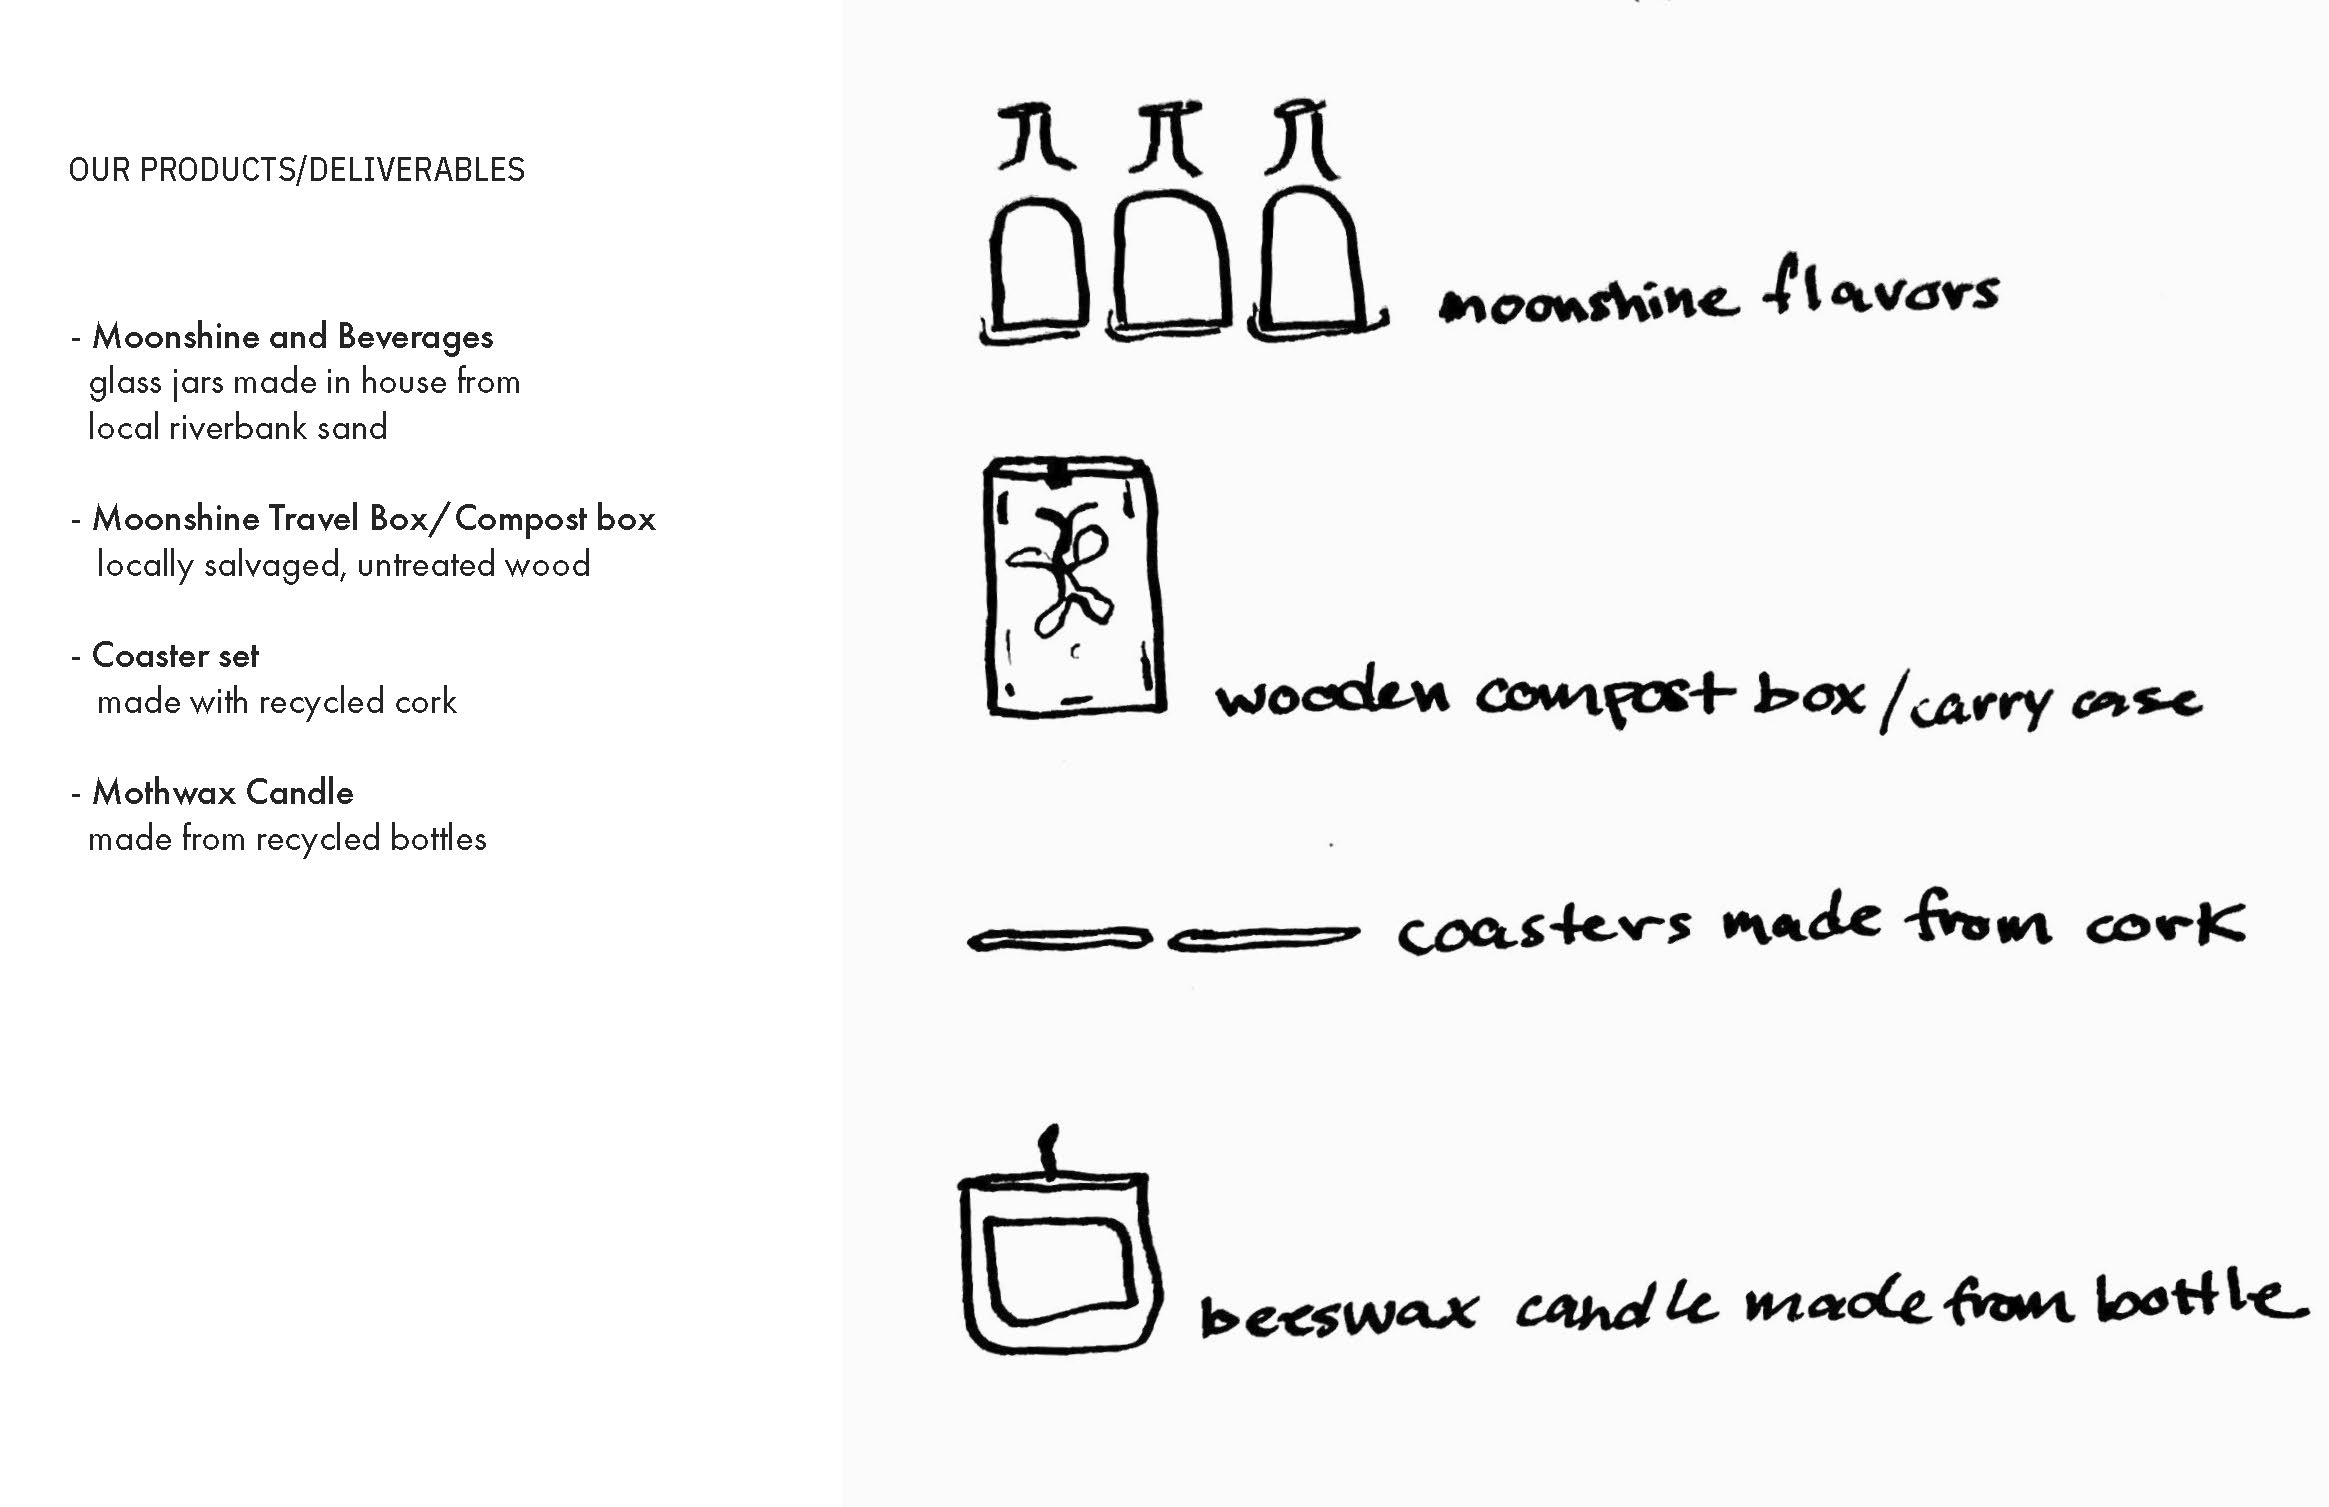 OUR PRODUCTS/DELIVERABLES
- Moonshine and Beverages
glass jars made in house from
local riverbank sand
- Moonshine Travel Box/Compost box
locally salvaged, untreated wood
- Coaster set
made with recycled cork
- Mothwax Candle
made from recycled bottles
moonshine flavors
wooden compost box/carry case
coasters made from cork
beeswax candle made from bottle